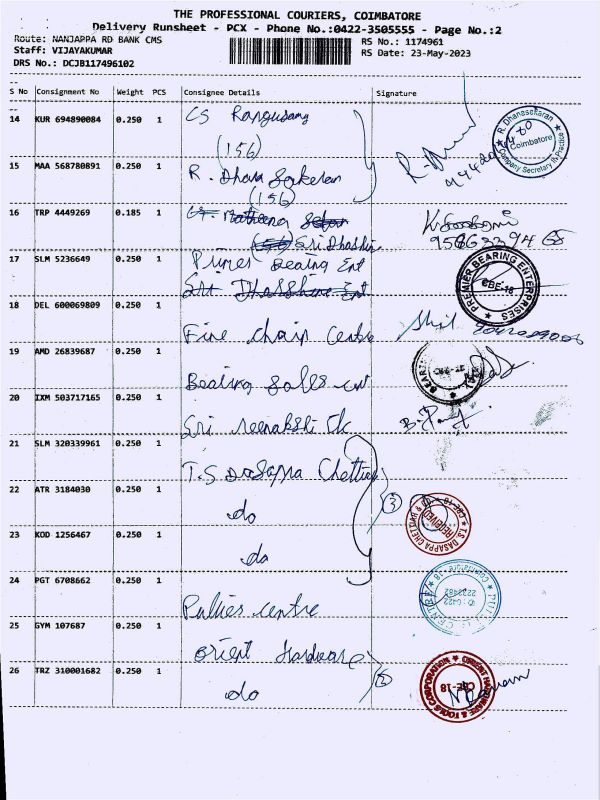 THE PROFESSIONAL COURIERS, COIMBATORE
Delivery Runsheet - PCX - Phone No.:0422-3505555 - Page No.:2
Route: NANJAPPA RD BANK CMS
RS No.: 1174961
Staff: VIJAYAKUMAR
RS Date: 23-May-2023
DRS No.: DCJB117496102
S No Consignment No Weight PCS Consignee Details Signature
14 KUR 694890084 0.250 1 CS
(156)
R. Dhanasekaran Coimbatore Company Secretary in Practice
15 MAA 568780891 0.250 1 R. Dhana Sekeran
(156)
16 TRP 4449269 0.185 1
Sri Dhashin
17 SLM 5236649 0.250 1 Primer Bearing Ent
Sri Dhasshine Ent
PREMIER BEARING ENTERPRISES CBE-18
18 DEL 600069809 0.250 1
Fine Chain Centre
19 AMD 26839687 0.250 1
Bearing Sales
20 IXM 503717165 0.250 1
Sri
21 SLM 320339961 0.250 1
T.S Dasappa Chettiar
22 ATR 3184030 0.250 1
do
(3)
T.S. DASAPPA CHETTIAR RECEIVED
23 KOD 1256467 0.250 1
do
24 PGT 6708662 0.250 1
Pullies centre
25 GYM 107687 0.250 1
Orient Hardware
26 TRZ 310001682 0.250 1
do
(2)
ORIENT HARDWARE & TOOLS CORPORATION CBE-18